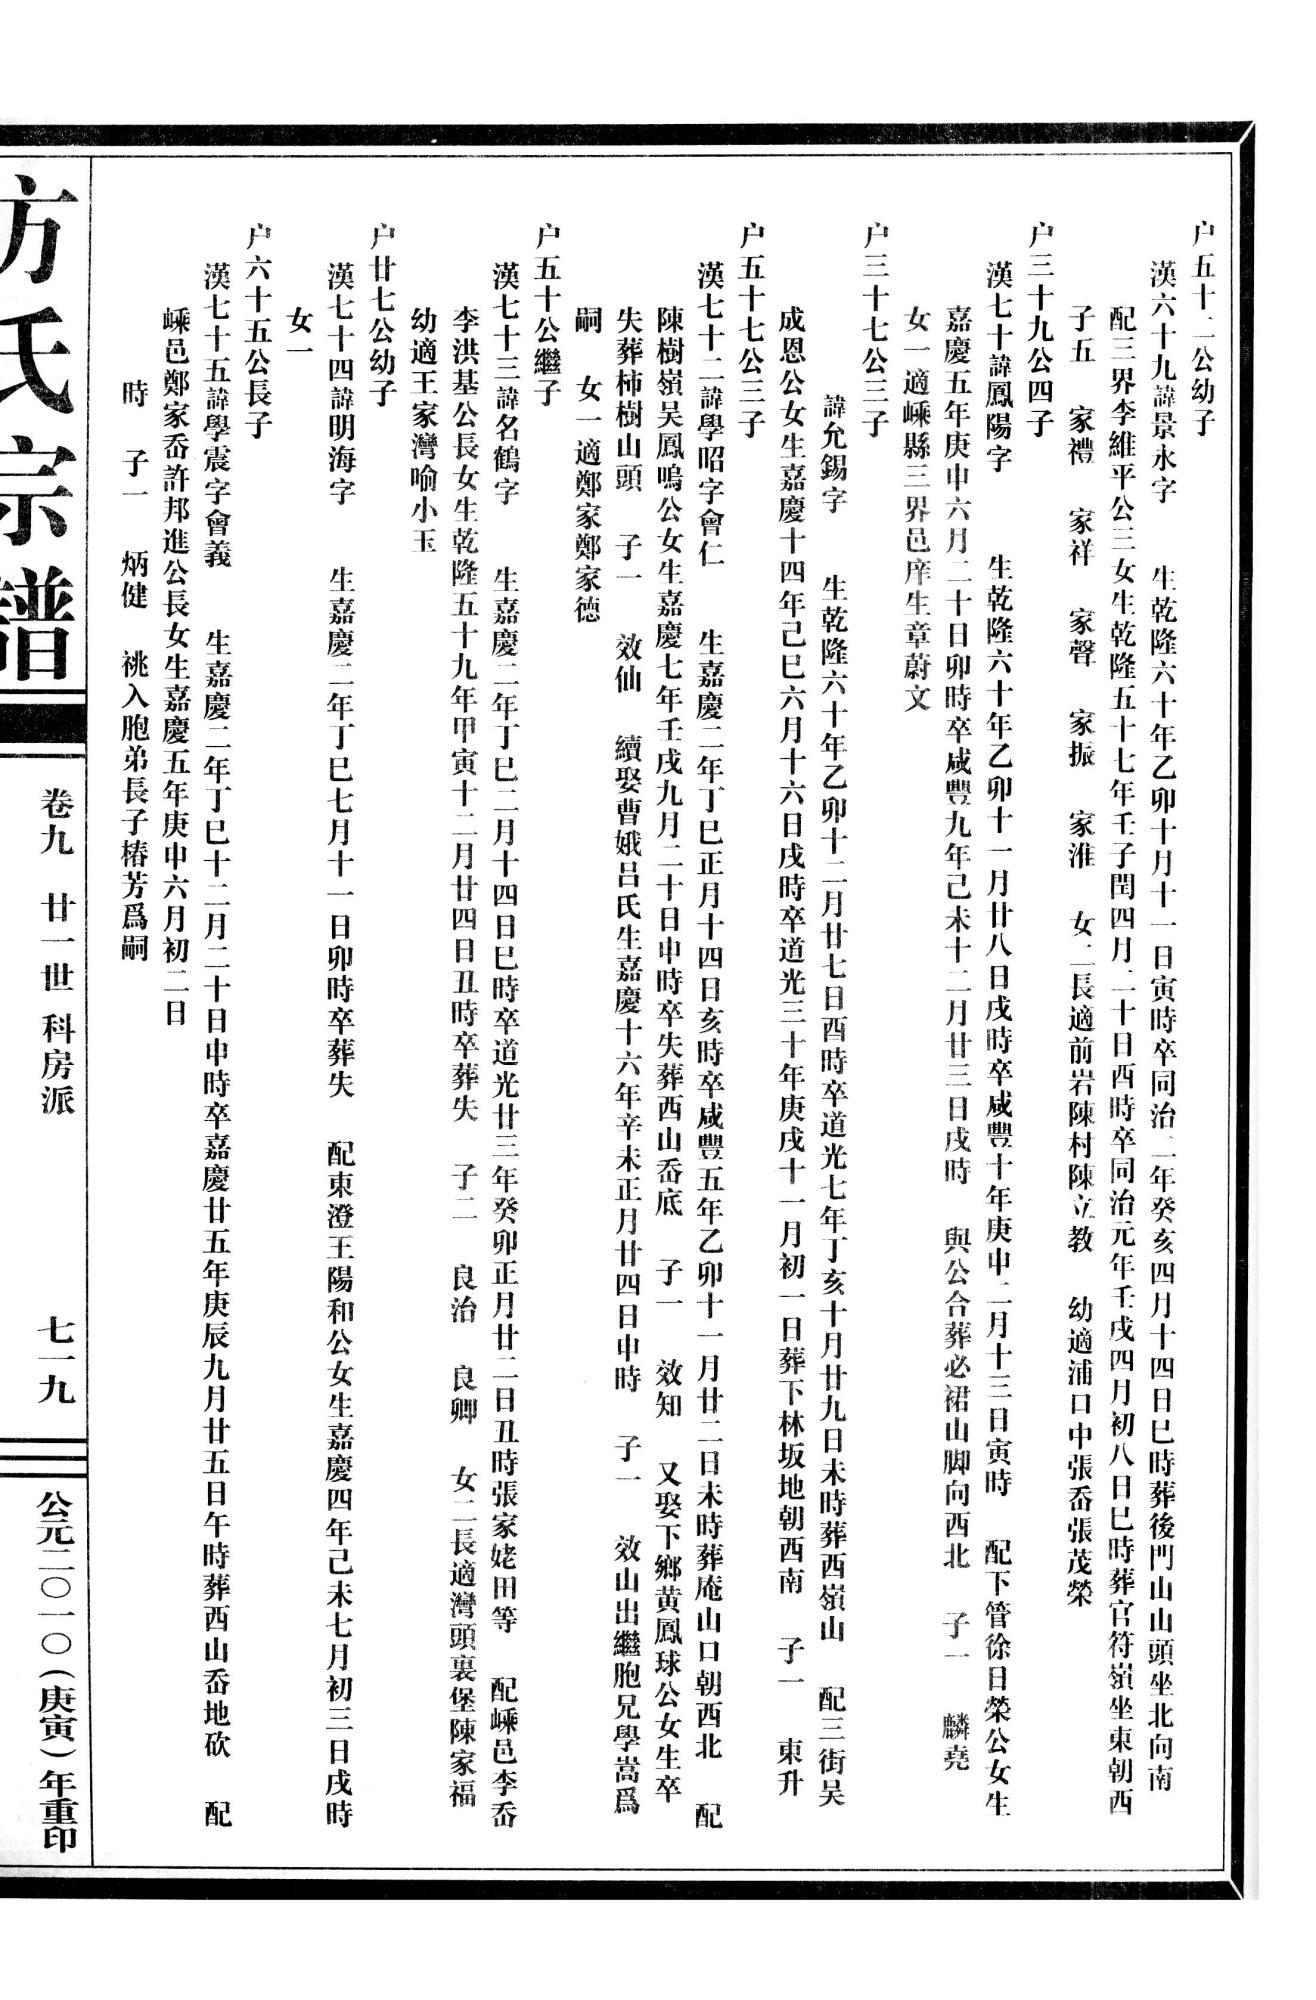 户五十二公幼子
漢六十九諱景永字　生乾隆六十年乙卯十月十一日寅時卒同治二年癸亥四月十四日巳時葬後門山山頭坐北向南
配三界李維平公三女生乾隆五十七年壬子閏四月二十日酉時卒同治元年壬戌四月初八日巳時葬官符嶺坐東朝西
子五　家禮　家祥　家聲　家振　家淮　女二長適前岩陳村陳立教　幼適浦口中張岙張茂榮
户三十九公四子
漢七十諱鳳陽字　生乾隆六十年乙卯十一月廿八日戌時卒咸豐十年庚申二月十三日寅時　配下管徐日榮公女生
嘉慶五年庚申六月二十日卯時卒咸豐九年己未十二月廿三日戌時　與公合葬必裙山脚向西北　子一　麟堯
女一適嵊縣三界邑庠生章蔚文
户三十七公三子
諱允錫字　生乾隆六十年乙卯十二月廿七日酉時卒道光七年丁亥十月廿九日未時葬西嶺山　配三街吴
成恩公女生嘉慶十四年己巳六月十六日戌時卒道光三十年庚戌十一月初一日葬下林坂地朝西南　子一　東升
户五十七公三子
漢七十二諱學昭字會仁　生嘉慶二年丁巳正月十四日亥時卒咸豐五年乙卯十一月廿二日未時葬庵山口朝西北　配
陳樹嶺吴鳳鳴公女生嘉慶七年壬戌九月二十日申時卒失葬西山岙底　子一　效知　又娶下鄉黄鳳球公女生卒
失葬柿樹山頭　子一　效仙　續娶曹娥吕氏生嘉慶十六年辛未正月廿四日申時　子一　效山出繼胞兄學嵩爲
嗣　女一適鄭家鄭家德
户五十公繼子
漢七十三諱名鶴字　生嘉慶二年丁巳二月十四日巳時卒道光廿三年癸卯正月廿二日丑時張家姥田等　配嵊邑李岙
李洪基公長女生乾隆五十九年甲寅十二月廿四日丑時卒葬失　子二　良治　良卿　女二長適灣頭裏堡陳家福
幼適王家灣喻小玉
户廿七公幼子
漢七十四諱明海字　生嘉慶二年丁巳七月十一日卯時卒葬失　配東澄王陽和公女生嘉慶四年己未七月初三日戌時
女一
户六十五公長子
漢七十五諱學震字會義　生嘉慶二年丁巳十二月二十日申時卒嘉慶廿五年庚辰九月廿五日午時葬西山岙地砍　配
嵊邑鄭家岙許邦進公長女生嘉慶五年庚申六月初二日
時　子一　炳健　祧入胞弟長子椿芳爲嗣
方氏宗譜
卷九　廿一世　科房派
七一九
公元二〇一〇（庚寅）年重印